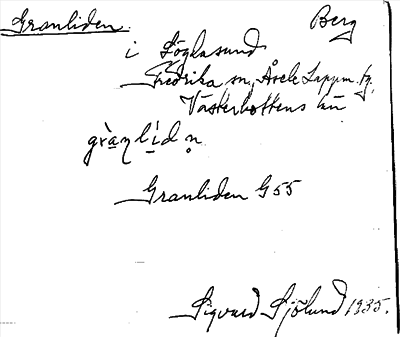 Granliden. Berg
i Löglasund
Fredrika sn, Åsele Lappm. tg.
Västerbottens län
Granliden G55
Sigvard Sjölund 1935.